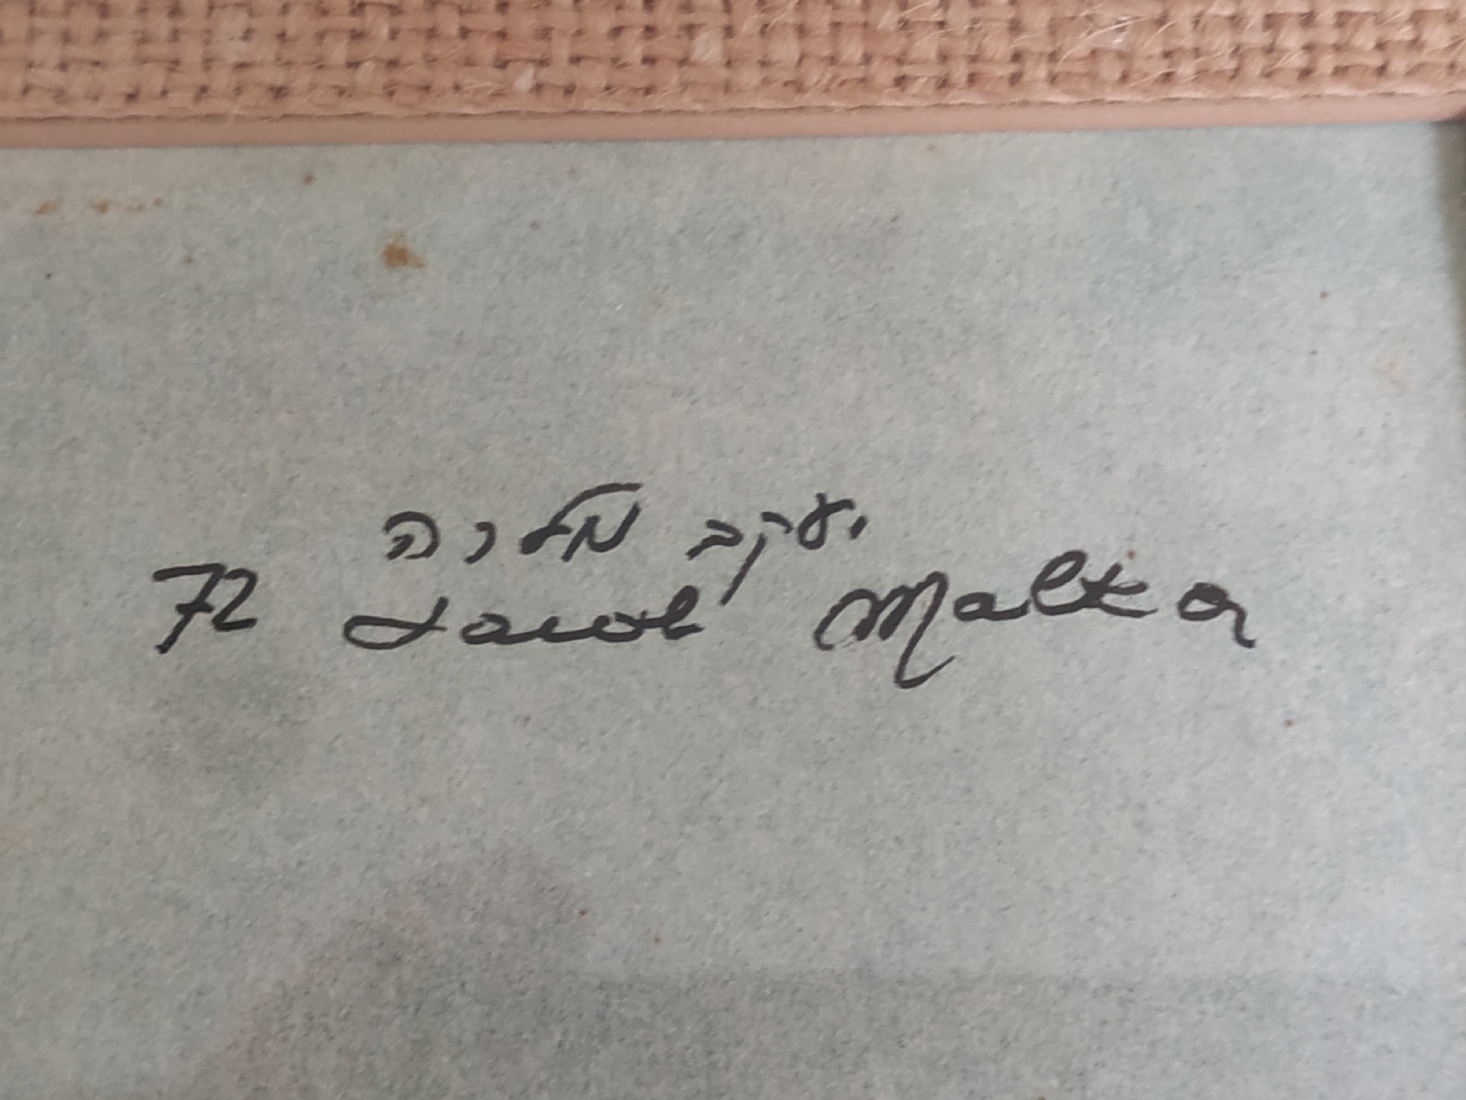 יעקב מלכה
72 Jacob Malka